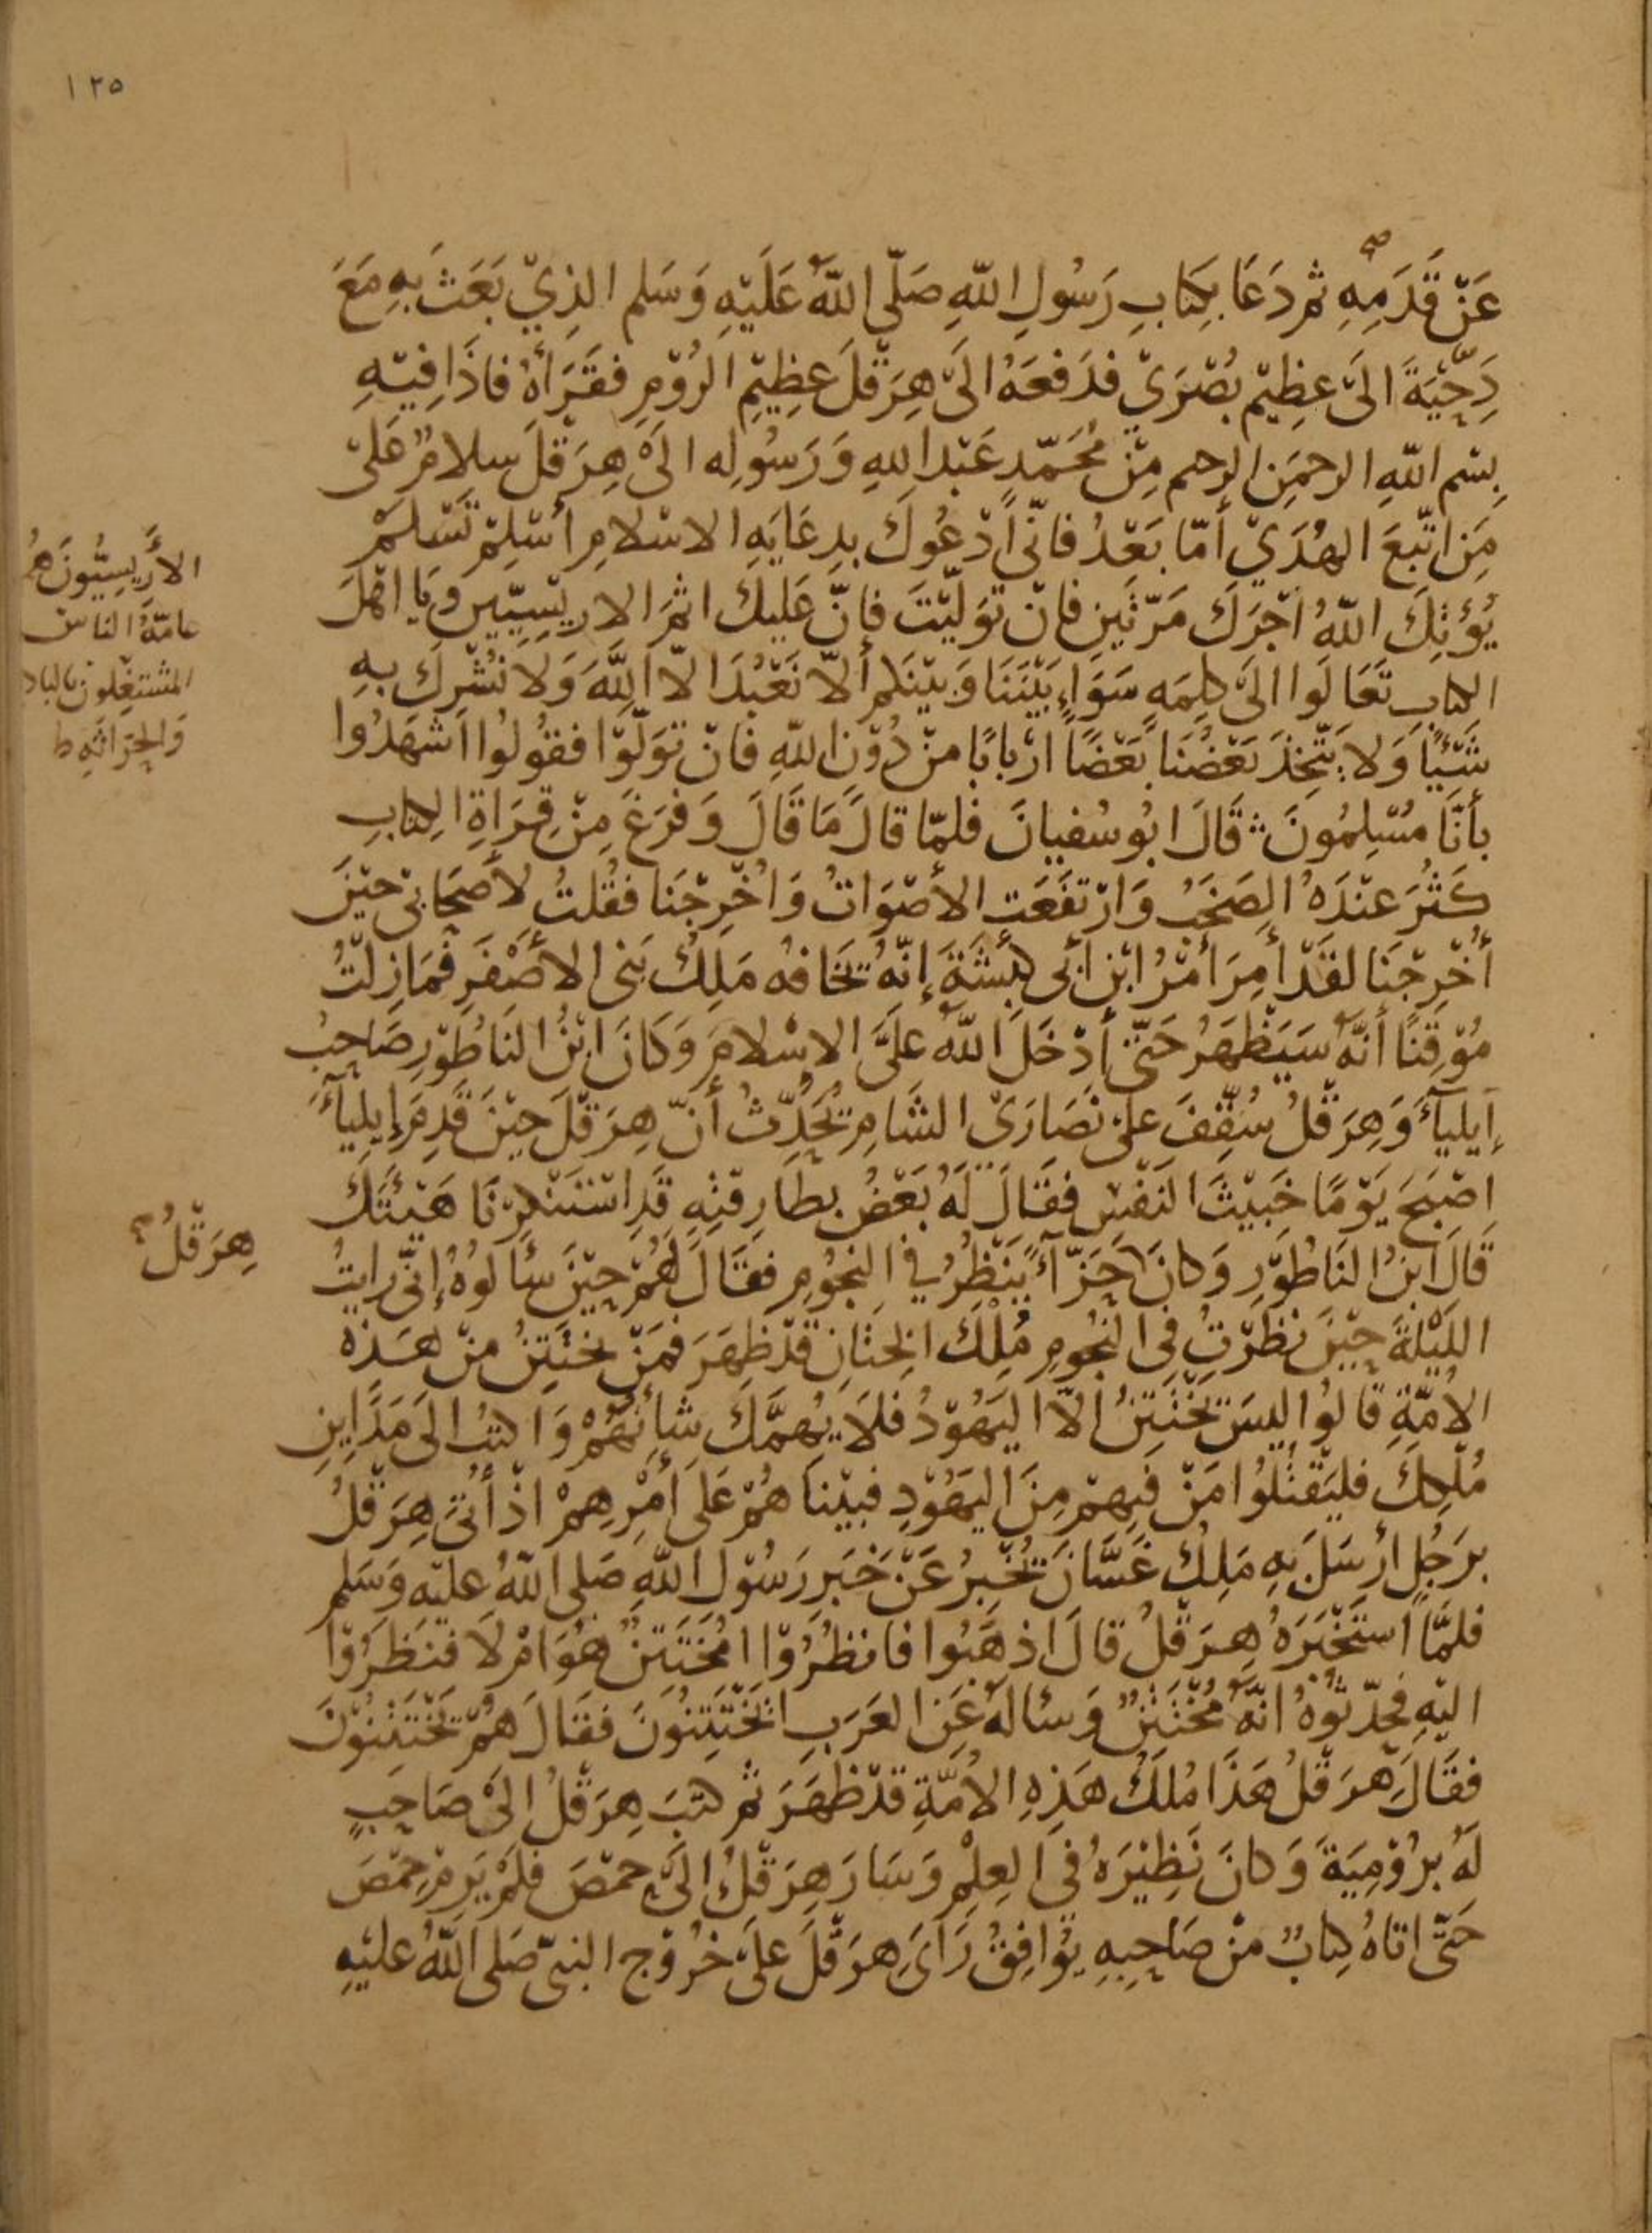 ١٢٥
عَنْ قَدَمِهِ ثم دَعَا بكِتَابِ رَسُولِ اللّهِ صَلّى اللّهُ عَلَيْهِ وَسَلم الذِيْ بَعَثَ بِهِ مَعَ
دِحْيَةَ الَى عظِيْم بُصْرَيْ فدَفعَهُ الَى هِرَقْلَ عظِيْمِ الرُوْمِ فقَرَأهُ فاذَا فِيْهِ
بِسْم اللّهِ الرحمَنِ الرحيم مِنْ مُحَمّدٍ عَبْدِ اللهِ وَرَسُولِه الَى هِرَقْلَ سلامٌ عَلى
مَنِ اتّبعَ الهُدَيْ أمّا بَعْدُ فانّي أدْعُوكَ بدِعَايَهِ الاسْلامِ أسْلِمْ تَسْلَمْ
يُؤْتِكَ اللّهُ اجْرَكَ مَرّتَينِ فانْ تَوَلّيْتَ فانّ عَلَيك اثمَ الاريْسِيّين وَيَا اهْلَ
الكتابِ تعَالَوا الَى كلِمَهٍ سَوَاءٍ بَيْنَنَا وَبَيْنَكم ألاّ نَعْبُدَ الاّ اللّهَ وَلا نُشْرِكَ بهِ
شَيْئًا وَلا يتّخِذَ بَعْضُنَا بَعْضًا ارْبَابًا منْ دُوْنِ اللّهِ فانْ تَوَلّوْا فقُولُوا اشْهَدُوا
بأنّا مُسْلِمُونَ قَالَ ابُو سُفيانَ فلمّا قالَ مَا قَالَ وَفرَغَ مِنْ قِرَاةِ الكِتابِ
كَثُرَ عنْدَهُ الصَخَبُ وَارْتفَعَتِ الأصْوَاتُ وَاُخْرِجْنَا فقُلتُ لأصْحَابيْ حيْنَ
أُخْرِجْنَا لقَدْ أمِرَ أمْرُ ابْنِ ابْي كبْشَةَ إنّهُ يخَافهُ مَلِكُ بَني الأصْفَرِ فمَا زِلتُ
مُوْقِنًا أنّهُ سَيَظهَرُ حَتّى أدْخَلَ اللّهُ علَيَّ الاسْلامَ وَكانَ ابْنُ النَاطُوْرِ صَاحِبُ
إيلياءَ وَهِرَقْلُ سُقّفَ على نصَارَى الشَامِ يُحَدّثُ أنّ هِرَقْلَ حيْنَ قدِمَ إيلِياءَ
اصْبَحَ يَوْمًا خَبيْثَ النَفسِ فقَالَ لهُ بَعْضُ بطارِقتِهِ قدِ اسْتَنْكرْنَا هَيْئَتَكَ
قَالَ ابْنُ النَاطُوْرِ وَكانَ حَزّاءً يَنْظُرُ في النجُومِ فقَالَ لَهُمْ حِيْنَ سَألوُهُ إنّي رَايتُ
اللَيْلةَ حيْنَ نظَرْتُ في النجُومِ مُلِكَ الخِتانِ قدْ ظهَرَ فمَنْ يختَتِنُ منْ هَذهِ
الاُمّةِ قَالوُا ليسَ يَخْتَتِنُ إلاّ اليَهُوْدُ فلا يُهِمّنّكَ شأنُهُمْ وَاكتُبْ الَى مَدَاينِ
مُلْكِكَ فليَقْتُلوُا مَنْ فيهِمْ مِنَ اليَهُوْدِ فبيْنَا هُمْ عَلَى أمْرِهِمْ اذْ أُتيَ هِرَقلُ
برَجُلٍ ارْسَلَ بهِ مَلِكُ غَسَّانَ يُخْبِرُ عَنْ خَبَرِ رَسُوْلِ اللّهِ صَلى اللّهُ عليْهِ وَسَلم
فلمَّا استَخْبَرَهُ هِرَقْلُ قالَ اذهَبُوا فانظُرُوْا امُخْتَتِنٌ هُوَ امْ لا فنَظَرُوْا
اليْهِ فحَدّثُوْهُ انّهُ مُخْتَتِنٌ وَسَألهُ عَنِ العَرَبِ ايَخْتَتِنُونَ فقَالَ هُمْ يَخْتَتِنُوْنَ
فقَالَ هِرَقْلُ هَذَا مُلكُ هَذِهِ الاُمّةِ قدْ ظهَرَ ثم كتَبَ هِرَقْلُ الَى صَاحِبٍ
لَهُ برُوْمِيَةَ وَكانَ نَظِيْرَهُ في العِلْمِ وَسَارَ هِرَقْلُ إلَى حِمْصَ فلَمْ يَرِمْ حِمْصَ
حَتّى اتاهُ كِتابٌ منْ صَاحِبِهِ يُوَافِقُ رَايَ هِرَقْلَ عَلَى خرُوْجِ النبيّ صَلى اللّهُ عليْهِ
الأَرِيسِيُّونَ هُم
عامّةُ الناس
المشتغلون بالبلاد
وَالحِرَاثَهِ ط
هِرَقْلُ